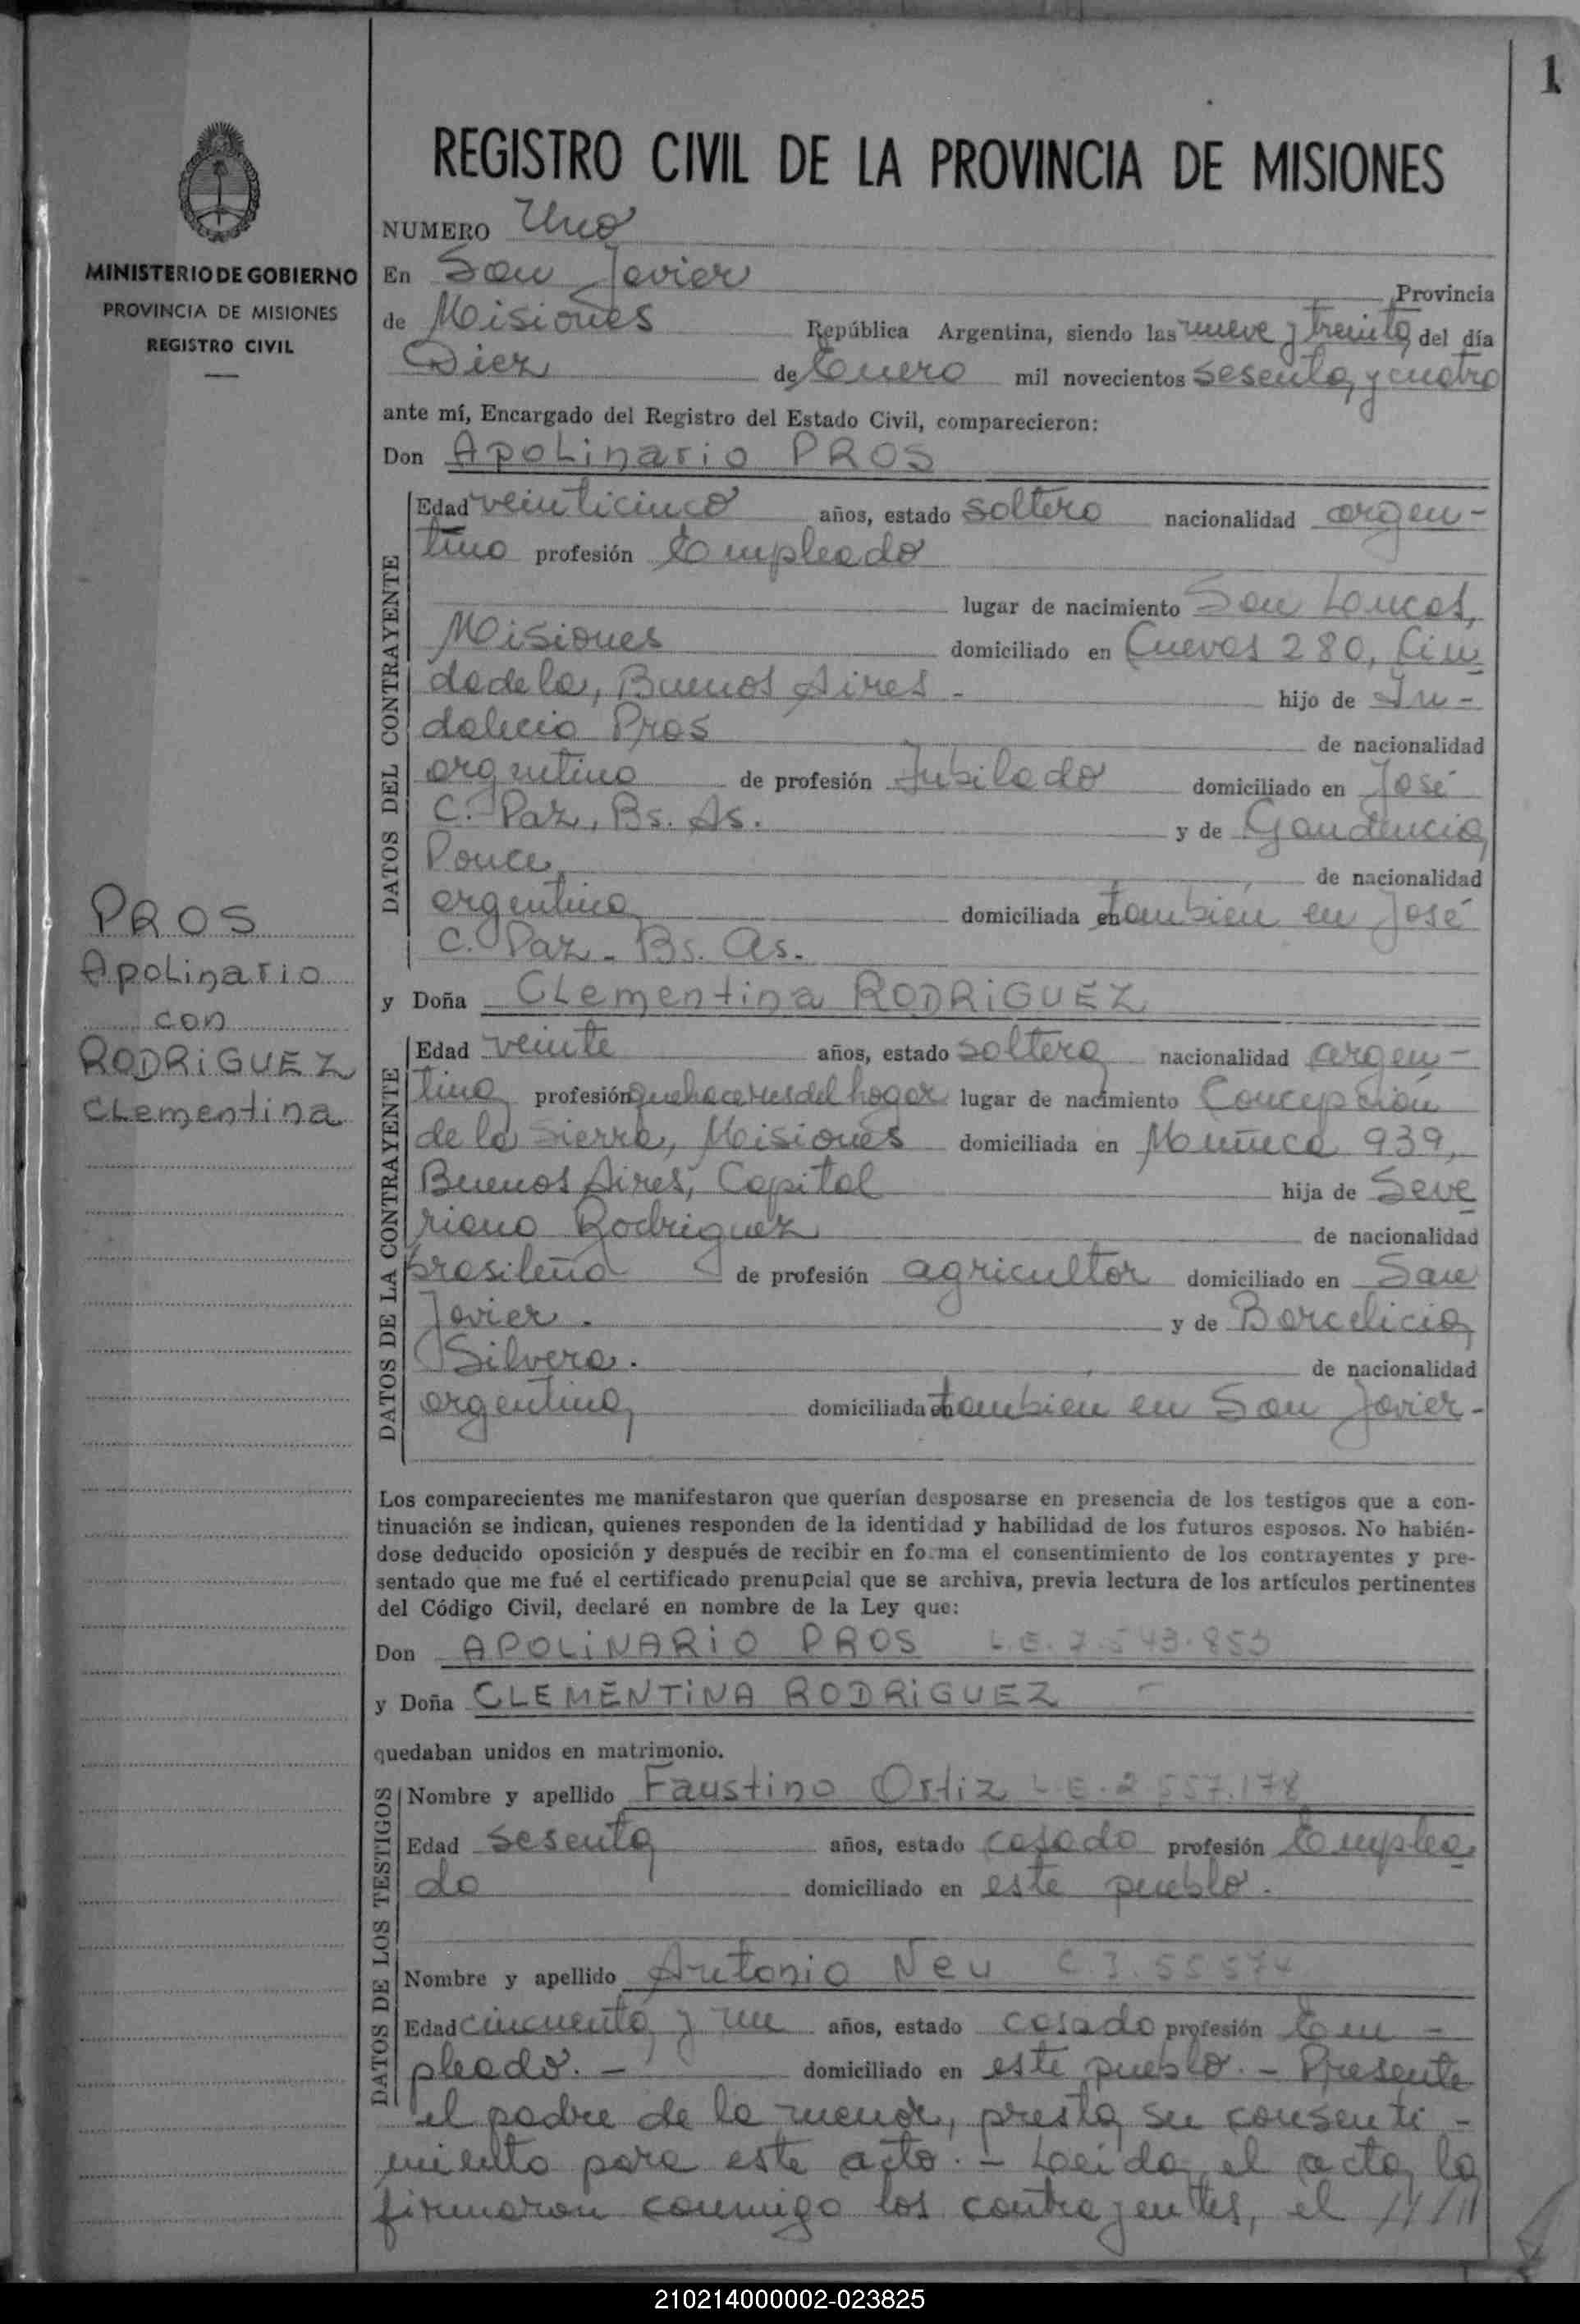 1
REGISTRO CIVIL DE LA PROVINCIA DE MISIONES
MINISTERIO DE GOBIERNO
PROVINCIA DE MISIONES
REGISTRO CIVIL
PROS
Apolinario
con
RODRIGUEZ
Clementina
NUMERO Uno
En San Javier Provincia
de Misiones República Argentina, siendo las nueve y treinta del día
Diez de Enero mil novecientos sesenta y cuatro
ante mí, Encargado del Registro del Estado Civil, comparecieron:
Don Apolinario PROS
DATOS DEL CONTRAYENTE
Edad veinticinco años, estado soltero nacionalidad argen-
tino profesión Empleado
lugar de nacimiento San Lucas,
Misiones domiciliado en Cuevas 280, Ciu
dadela, Buenos Aires - hijo de In-
dalecio Pros de nacionalidad
argentino de profesión Jubilado domiciliado en José
C. Paz, Bs. As. y de Gaudencia
Ponce de nacionalidad
argentina domiciliada en también en José
C. Paz - Bs. As.
y Doña Clementina RODRIGUEZ
DATOS DE LA CONTRAYENTE
Edad veinte años, estado soltera nacionalidad argen-
tina profesión quehaceres del hogar lugar de nacimiento Concepción
de la Sierra, Misiones domiciliada en 939,
Buenos Aires, Capital hija de Seve
riano Rodriguez de nacionalidad
brasileño de profesión agricultor domiciliado en San
Javier. y de Barcelicia
Silvera. de nacionalidad
argentina domiciliada en también en San Javier-
Los comparecientes me manifestaron que querían desposarse en presencia de los testigos que a con-
tinuación se indican, quienes responden de la identidad y habilidad de los futuros esposos. No habién-
dose deducido oposición y después de recibir en forma el consentimiento de los contrayentes y pre-
sentado que me fué el certificado prenupcial que se archiva, previa lectura de los artículos pertinentes
del Código Civil, declaré en nombre de la Ley que:
Don APOLINARIO PROS L.E. 7.543.853
y Doña CLEMENTINA RODRIGUEZ
quedaban unidos en matrimonio.
DATOS DE LOS TESTIGOS
Nombre y apellido Faustino Ortiz L.E. 2.557.178
Edad sesenta años, estado casado profesión Emplea
do domiciliado en este pueblo.
Nombre y apellido Antonio Neu C.I. 55574
Edad cincuenta y un años, estado casado profesión Em-
pleado. - domiciliado en este pueblo. - Presente
el padre de la menor, presta su consenti-
miento para este acto. - Leida el acta, la
firmaron conmigo los contrayentes, el
210214000002-023825